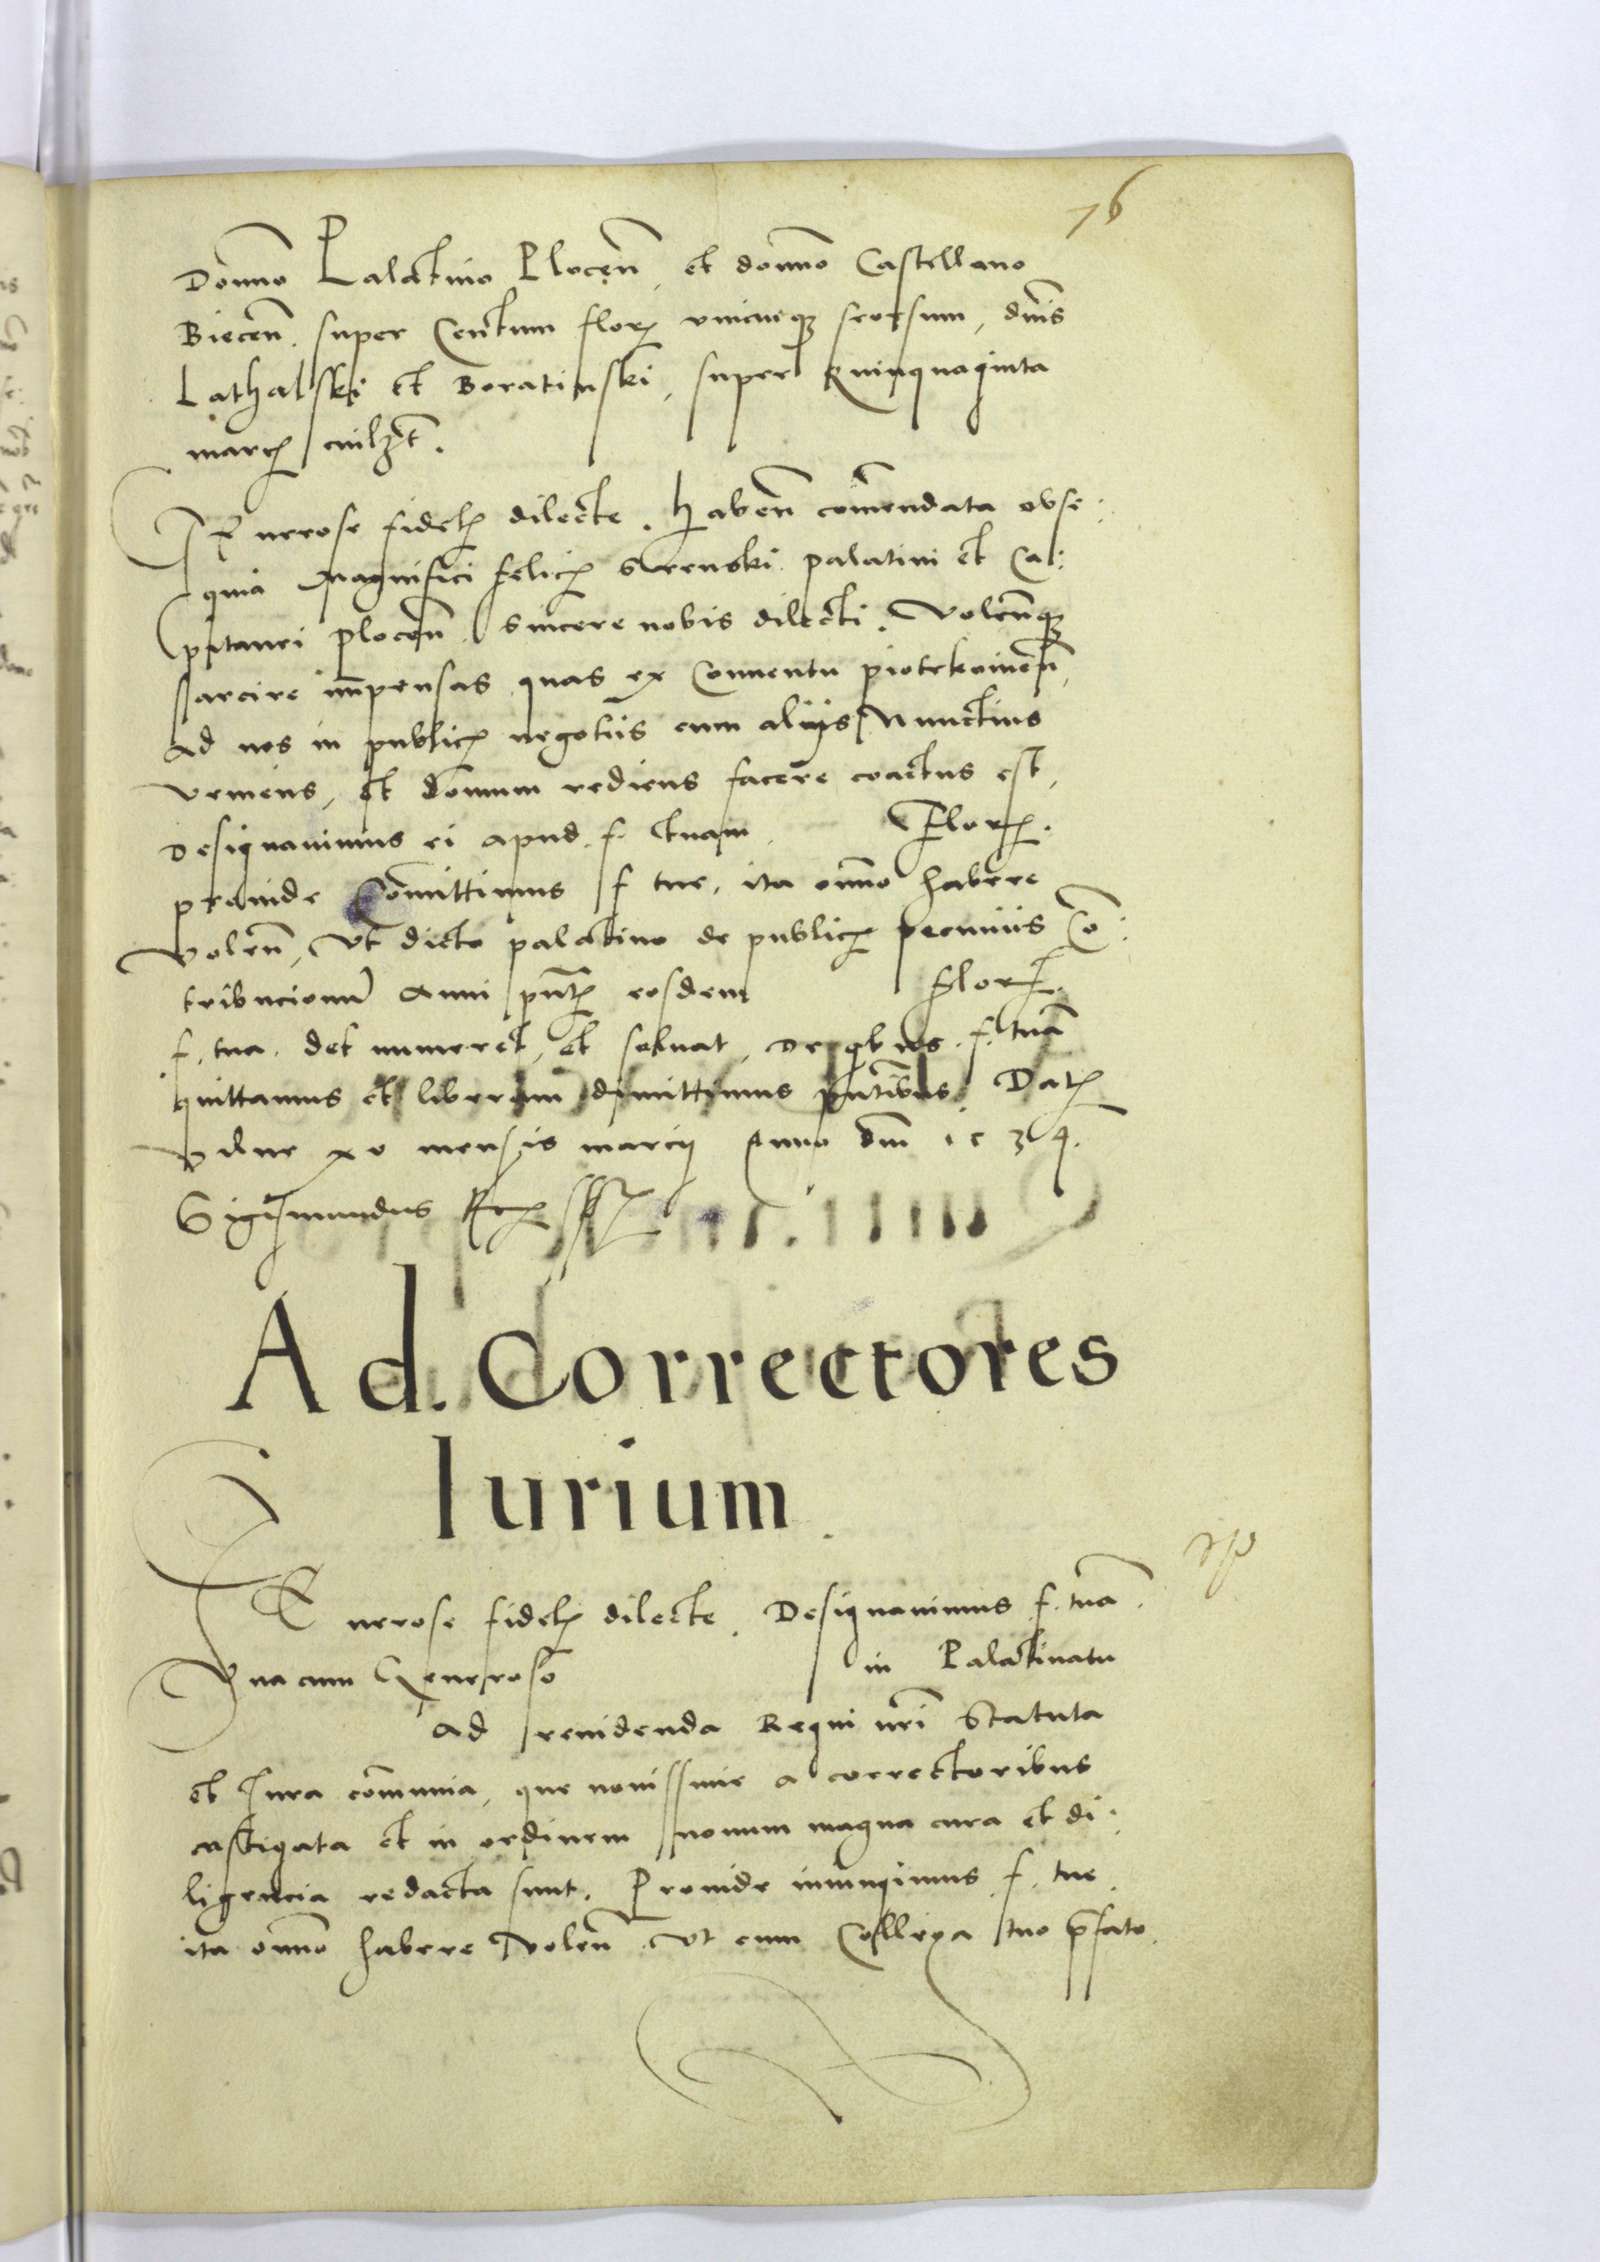 76
Domno Palatino Plocen̄, et domno Castellano
Biecen̄. super Centum floꝝ vnicuiqꝫ seorsum, dm̄s
Lathalski et Boratinski, super Quinquaginta
marcꝭ
Generose fidelꝭ dilecte. haben̄ com̄endata obse:
quia Magnifici felicꝭ Srenski palatini et Ca:
pitanei plocen̄. sincere nobis dilecti. Volen̄qꝫ
sarcire impensas quas ex Conuentu piotrkouien̄,
ad nos in publicꝭ negotiis cum alijs Nunctius
veniens, et domum rediens facere coactus est,
Designauimus ei apud f. tuam. Floꝝ.
proinde Com̄ittimus f tue, ita om̄no habere
volen̄, Vt dicto palatino de publicꝭ pecuniis Cō:
tribucionū Anni pn̄tꝭ eosdem floꝝ.
f. tua. det numeret, et soluat, De qbus f. tuā
quittamus et liberam dimittimus pn̄tibus. Datꝭ
Vilne xv mensis marcij Anno dm̄ 1534.
Sigismundus Rex sst
Ad. Correctores
Iurium.
Generose fidelꝭ dilecte. Designauimus f. tuā.
Vna cum Generoso in Palatinatu
Ad reuidenda Regni nrī Statuta
et Iura com̄unia, que nouissime a correctoribus
castigata et in ordinem nouum magna cura et di:
ligencia redacta sunt. Proinde iniungimus f. tue
ita om̄no habere Volen̄. Vt cum Collega tuo p̄fato.